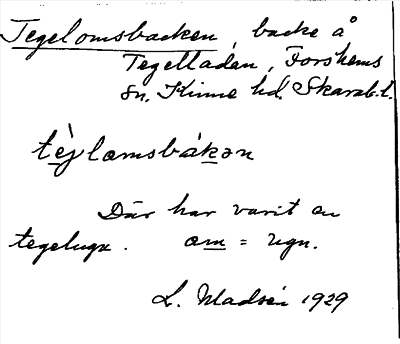 Tegelomsbacken, backe å
Tegelladan, Forshems
sn. Kinne hd. Skarab.l.
tèjlomsbákən
Där har varit en
tegelugn. om = ugn.
L. Madsén 1929